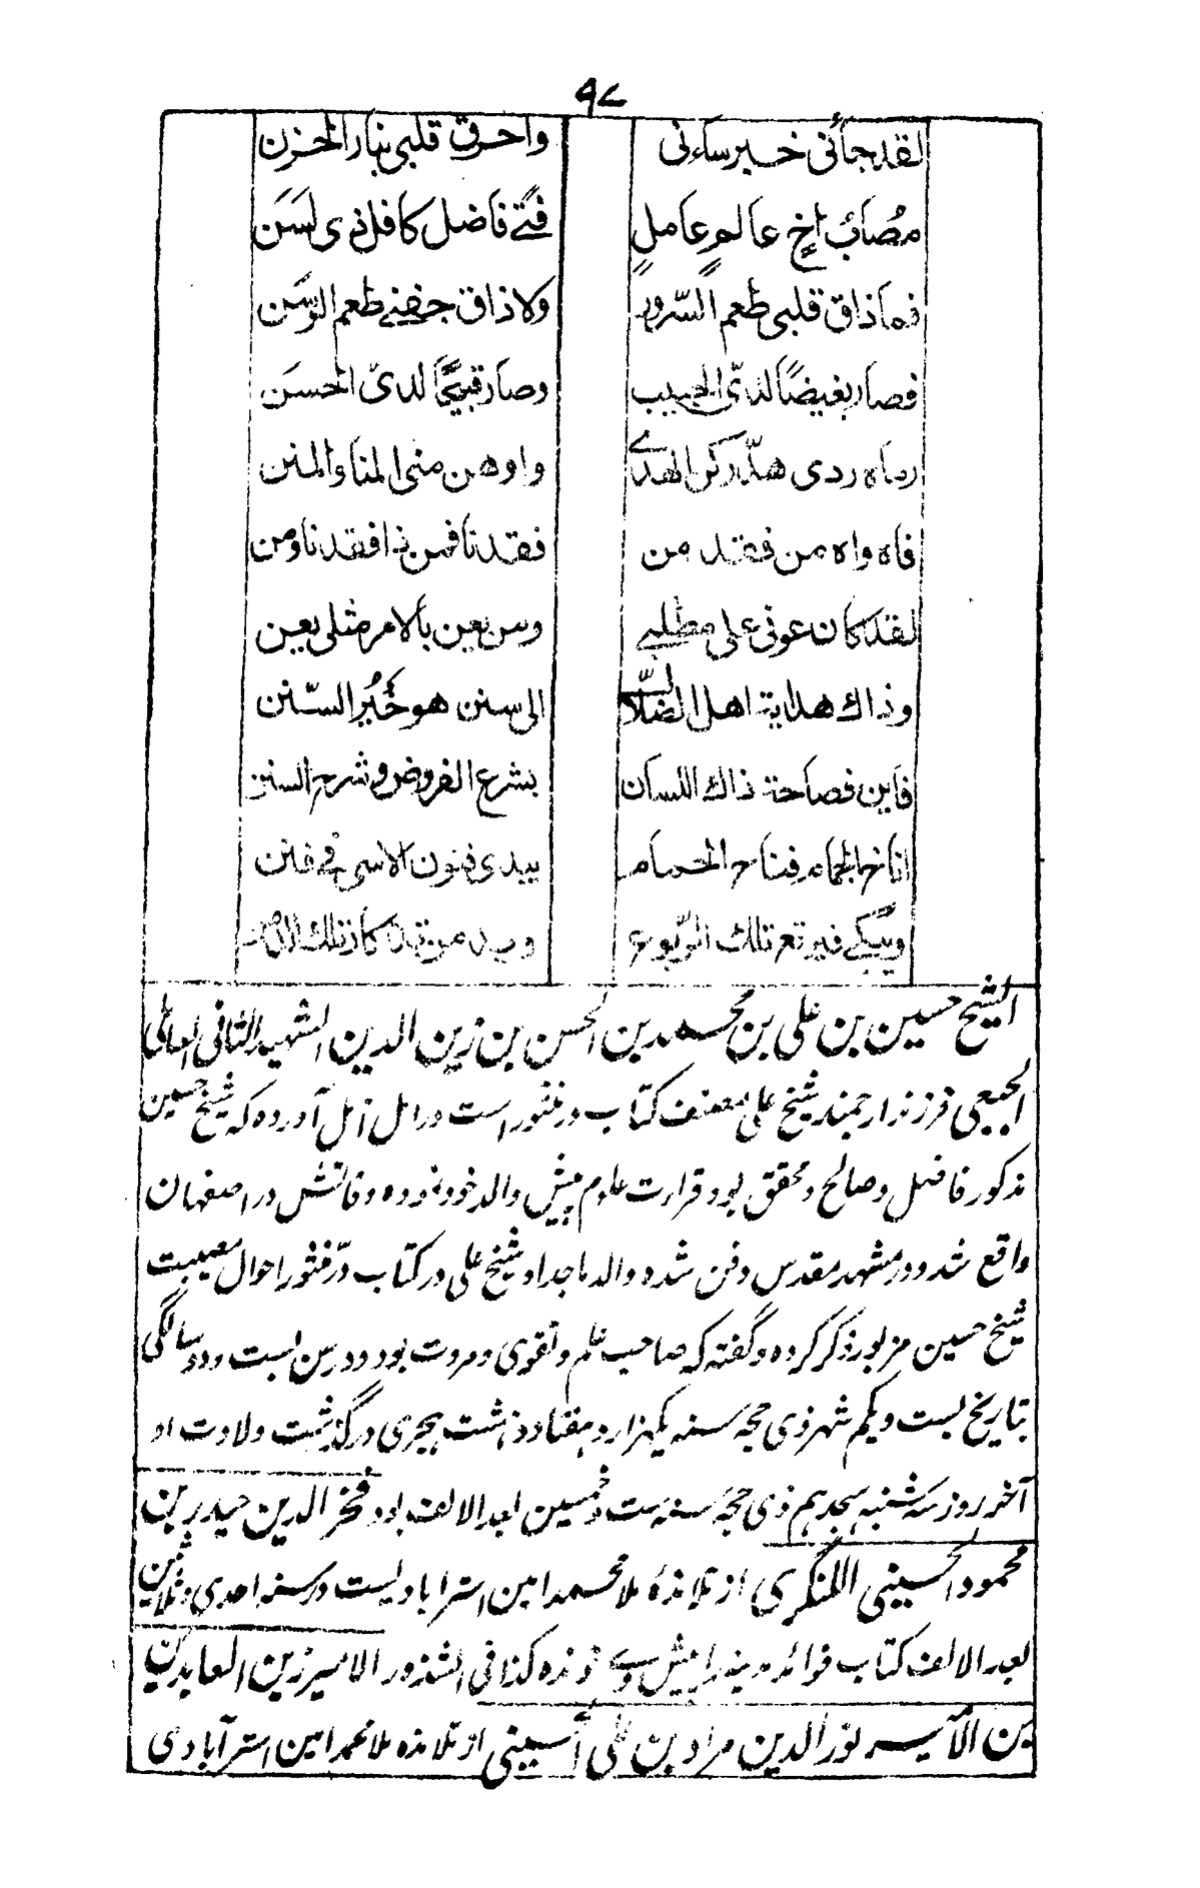 ۹۷
لقد جائنی خبر ساءنی واحرق قلبی بنار الحزن
مصاب اخٍ عالمٍ عاملٍ فتے فاضل کافل ذی لسن
فما ذاق قلبی طعم السّرور ولا ذاق جفنے طعم الوسن
فصار بغیضًا لدیّ الحبیب وصار قبیحًا لدیّ الحسن
رماه ردی هدّ رکن الهدے واوهن منی المنا والمنن
فاه واه من فقد من فقدنا فمن ذا فقدنا ومن
لقد کان عونی علی مطلبے ومن یعین بالامر مثلی یعن
وذاك هدایة اهل الضلال الی سنن هو خیر السّنن
فاین فصاحة ذاك اللسان بشرع الفروض و شرح السنن
الحمام فناح الحمام یبدی فنون الاسی فے فنن
ویبکے تلك الرّبوع
الشیخ حسین بن علی بن محمد بن الحسن بن زین الدین الشهید الثانی العاملی
الجبعی فرزند ارجمند شیخ علی مصنف کتاب در منثور است در امل آمل آورده که شیخ حسین
مذکور فاضل و صالح و محقق بود قراءت علوم پیش والد خود نموده وفاتش در اصفهان
واقع شد و در مشهد مقدس دفن شده والد ماجد او شیخ علی در کتاب درّ منثور احوال مصیبت
شیخ حسین مزبور ذکر کرده و گفته که صاحب علم و تقوی و مروت بود و در سن بست و دو سالگی
بتاریخ بست و یکم شهر ذی حجه سنه یکهزار و هفتاد و هشت هجری درگذشت ولادت او
آخر روز سه شنبه هجدهم ذی حجه سنه ست و خمسین بعد الالف بود فخر الدین حیدر بن
محمود الحسینی اللنگری از تلامذهٔ ملا محمد امین استرابادیست در سنه احدی و ثلاثین
بعد الالف کتاب فوائد مدینه را پیش وے خوانده کذا فی الشذور الامیر زین العابدین
بن الامیر نور الدین مراد بن علی الحسینی از تلامذه ملا محمد امین استرآبادی